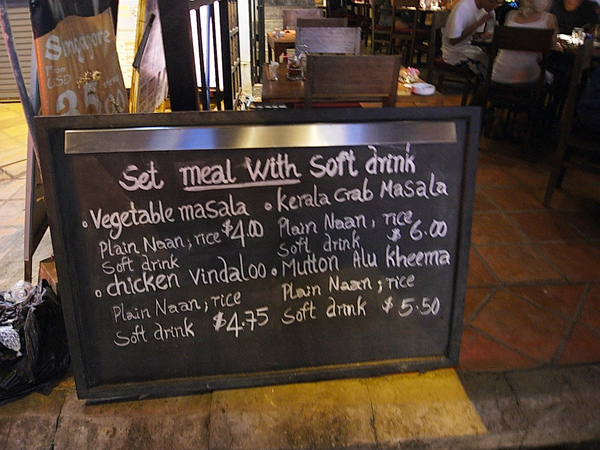 Singapore
USD
35.00
Set meal With Soft drink
Vegetable masala $4.00
Plain Naan, rice
Soft drink
chicken Vindaloo
Plain Naan, rice
Soft drink $4.75
Kerala Crab Masala
Plain Naan, rice
Soft drink $6.00
Mutton Alu Kheema
Plain Naan, rice
Soft drink $5.50